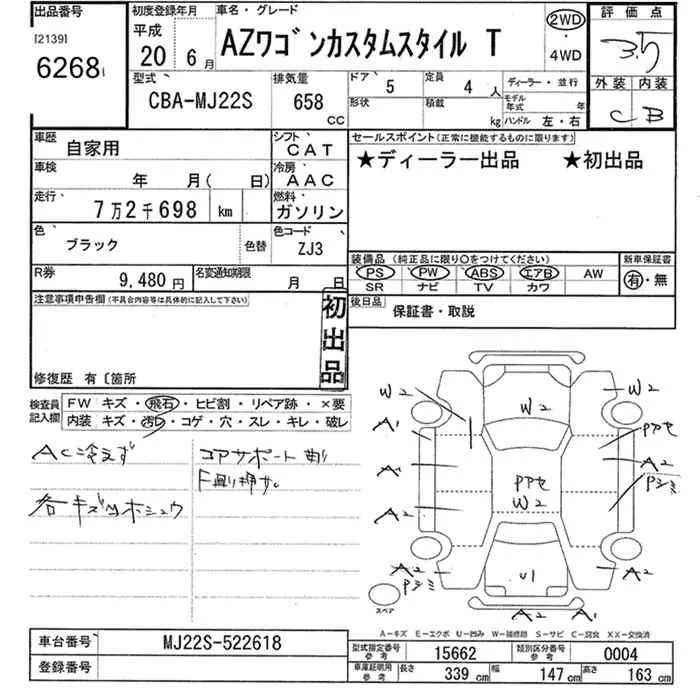 出品番号
[2139]
6268
初度登録年月
平成
20 6月
車名・グレード
AZワゴンカスタムスタイル T
2WD
・
4WD
評価点
3.5
外装 内装
C B
型式
CBA-MJ22S
排気量
658
cc
ドア
5
定員
4 人
形状
積載
kg
ディーラー・並行
モデル年式 年
ハンドル 左・右
車歴
自家用
シフト
CAT
車検
年 月( 日)
冷房
AAC
走行
7万2千698 km
燃料
ガソリン
色
ブラック
色替
色コード
ZJ3
R券
9,480円
名変通知期限
月 日
セールスポイント(正常に機能するものに限ります)
★ディーラー出品 ★初出品
装備品 (純正品に限り○をつけてください)
PS PW ABS エアB AW
SR ナビ TV カワ
新車保証書
有・無
後日品
保証書・取説
注意事項申告欄(不具合内容等は具体的に記入して下さい)
初出品
修復歴 有〔箇所
検査員記入欄
FW キズ・飛石・ヒビ割・リペア跡・×要
内装 キズ・汚レ・コゲ・穴・スレ・キレ・破レ
AC冷えず
各キズ凹ホシュウ
コアサポート
W2
W2
A1
A1
A2
A2
A2
A2
W2
A2
A1
U1
スペア
A-キズ E-エクボ U-凹み W-補修跡 S-サビ C-腐食 XX-交換済
車台番号
MJ22S-522618
登録番号
型式指定番号
参考
15662
類別区分番号
参考
0004
車庫証明用
参考
長さ 339 cm
幅 147 cm
高さ 163 cm